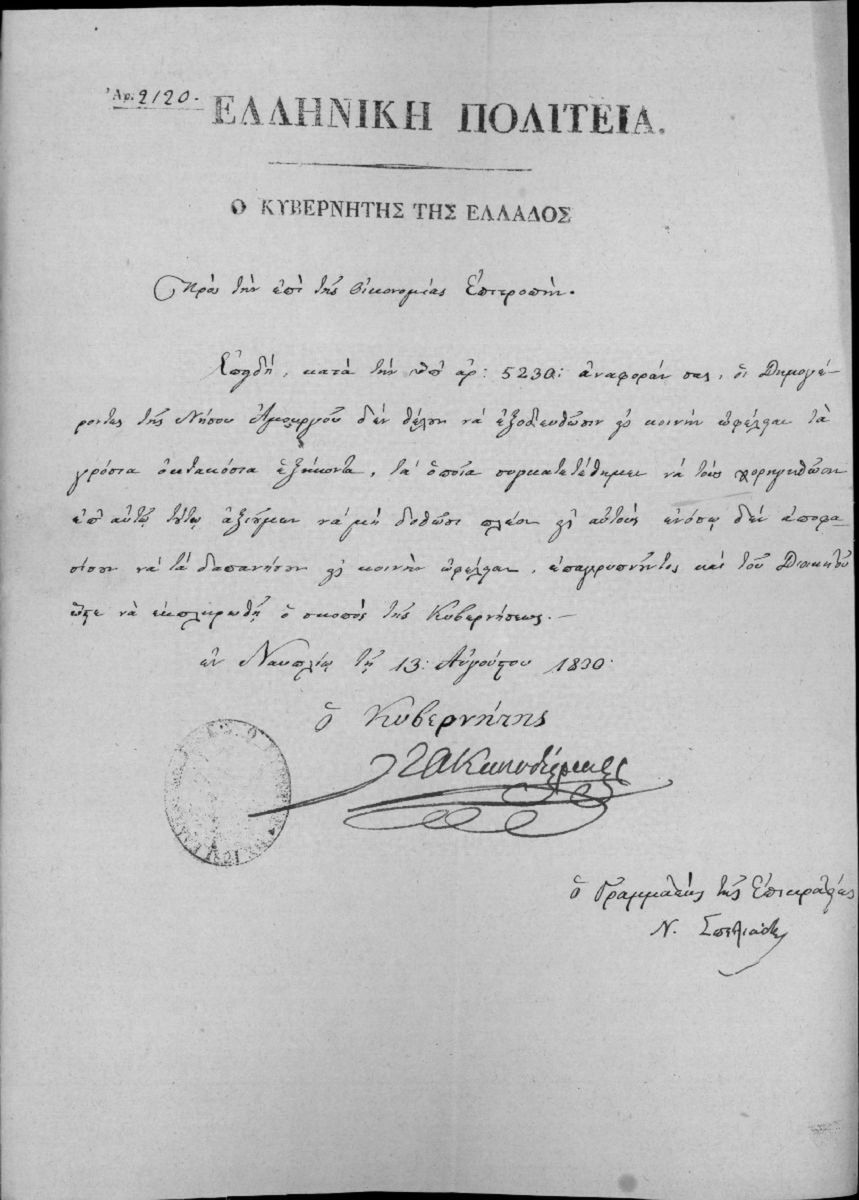 Ἀρ. 2120.
ΕΛΛΗΝΙΚΗ ΠΟΛΙΤΕΙΑ.
Ο ΚΥΒΕΡΝΗΤΗΣ ΤΗΣ ΕΛΛΑΔΟΣ
Πρὸς τὴν ἐπὶ τῆς Οἰκονομίας Ἐπιτροπήν.
Ἐπειδὴ, κατὰ τὴν ὑπ' ἀρ: 5230: ἀναφοράν σας, οἱ Δημογέ
ροντες τῆς Νήσου Ἀμοργοῦ δὲν θέλουν νὰ ἐξοδευθῶσιν εἰς κοινὴν ὠφέλειαν τὰ
γρόσια ὀκτακόσια ἑξήκοντα, τὰ ὁποῖα συγκατετέθημεν νὰ τοῖς χορηγηθῶσιν
ἐπ' αὐτῷ τούτῳ ἀξιοῦμεν νὰ μὴ δοθῶσι πλέον εἰς αὐτοὺς ἐνόσῳ δὲν ἀποφα
σίσουν νὰ τὰ δαπανήσουν εἰς κοινὴν ὠφέλειαν, ἐπαγρυπνοῦντος καὶ τοῦ Διοικητοῦ
ὥστε νὰ ἐκπληρωθῇ ὁ σκοπὸς τῆς Κυβερνήσεως.—
ἐν Ναυπλίῳ τῇ 13: Αὐγούστου 1830.
ὁ Κυβερνήτης
ΙΑ Καποδίστριας
ὁ Γραμματεὺς τῆς Ἐπικρατείας
Ν. Σπηλιάδης